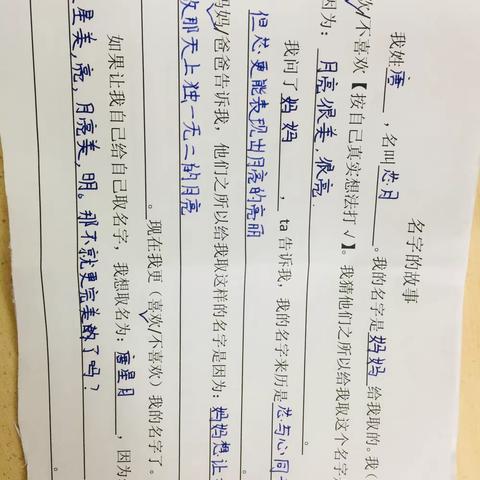 名字的故事
我姓唐，名叫芯月。我的名字是妈妈给我取的。我（
欢√/不喜欢【按自己真实想法打√】。我猜他们之所以给我取这个名字
因为：月亮很美，很亮.
我问了妈妈，ta告诉我，我的名字来历是芯与心同
但芯更能表现出月亮的亮丽
妈妈/爸爸告诉我，他们之所以给我取这样的名字是因为：妈妈想让
那天上独一无二的月亮
。现在我更（喜欢√/不喜欢）我的名字了。
如果让我自己给自己取名字，我想取名为：唐星月，因为
星美，亮，月亮美，明。那不就更完美的了吗？